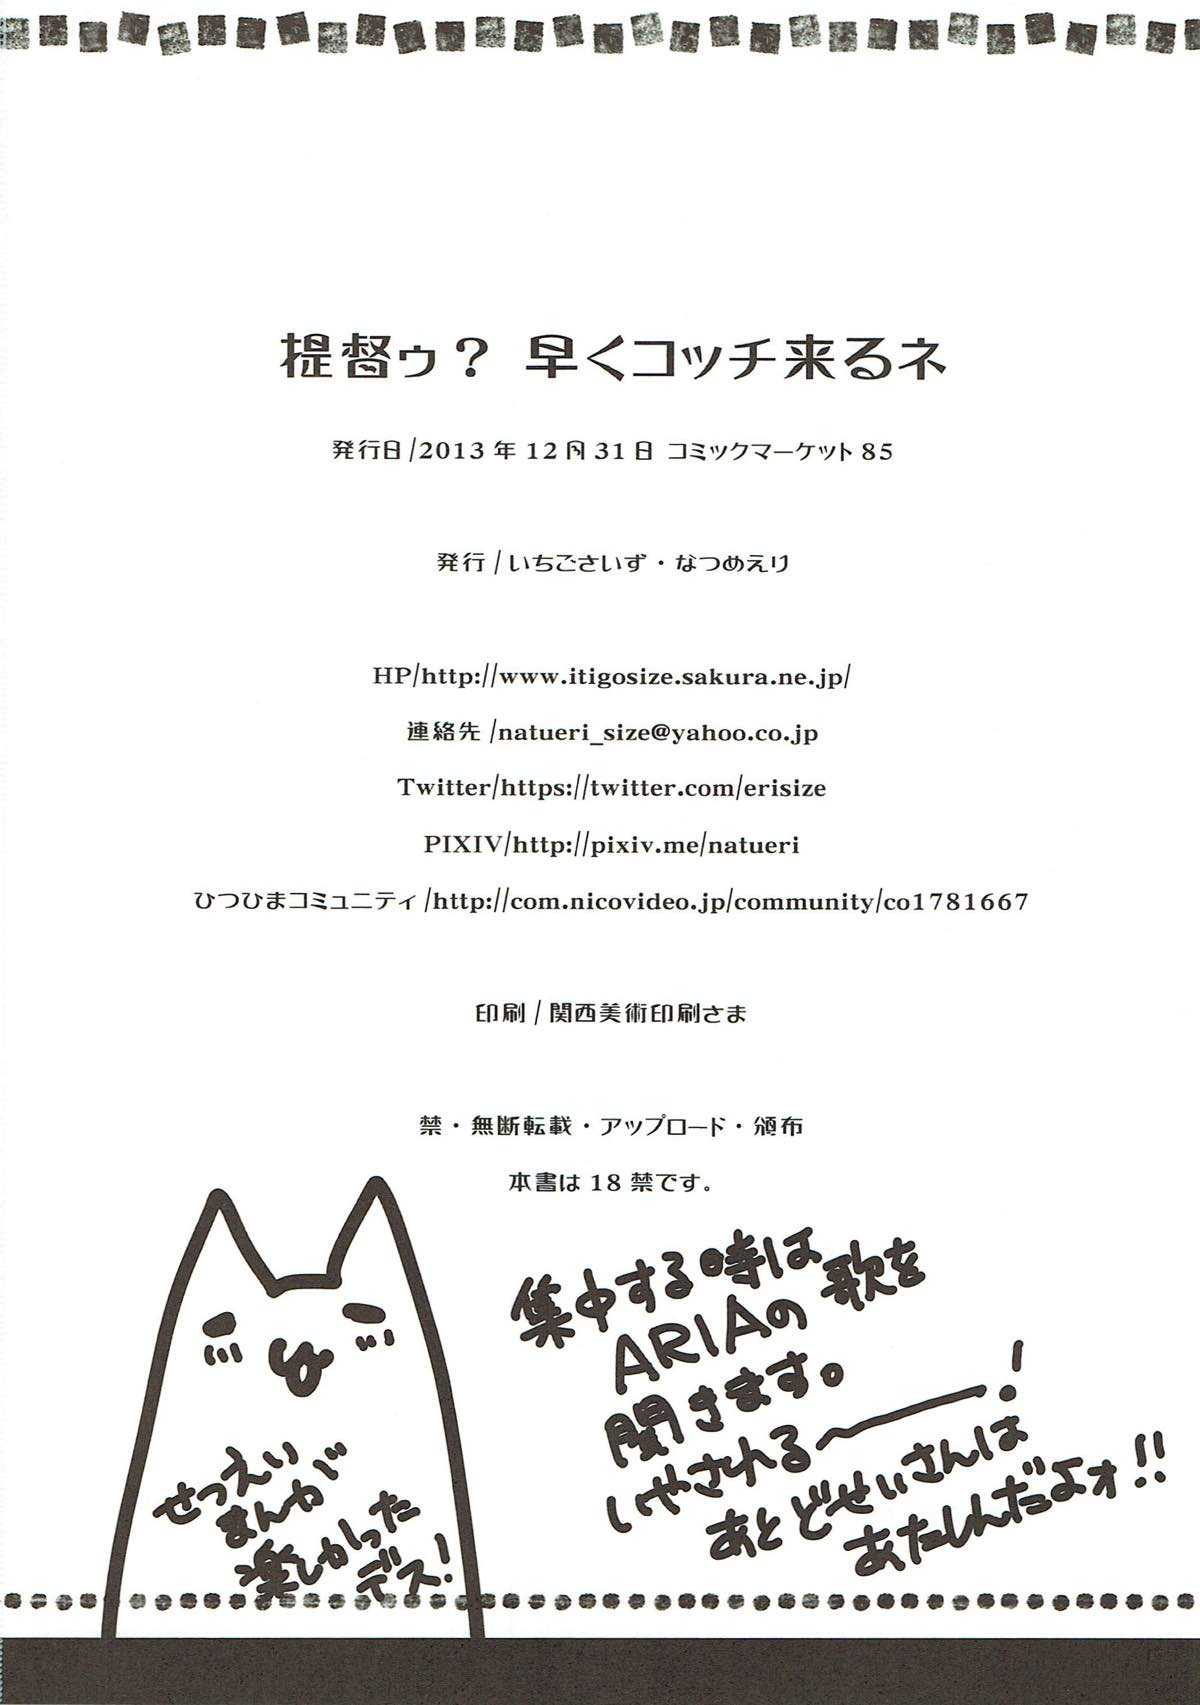 提督ゥ？ 早くコッチ来るネ
発行日/2013年12月31日 コミックマーケット85
発行/いちごさいず・なつめえり
HP/http://www.itigosize.sakura.ne.jp/
連絡先/natueri_size@yahoo.co.jp
Twitter/https://twitter.com/erisize
PIXIV/http://pixiv.me/natueri
ひつひまコミュニティ/http://com.nicovideo.jp/community/co1781667
印刷/関西美術印刷さま
禁・無断転載・アップロード・頒布
本書は18禁です。
集中する時は
ARIAの歌を
聞きます。
いやされる〜！
あとどせいさんは
あたしんだよォ!!
せつえい
まんが
楽しかった
デス！